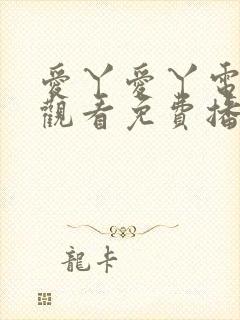 愛丫愛丫電
觀看免費播
龍卡